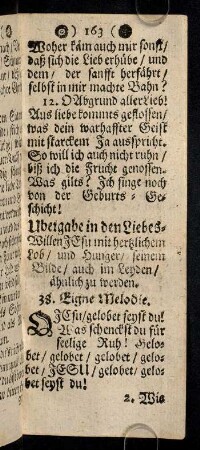 ) 163 (
Woher käm auch mir sonst/
daß sich die Lieb erhübe/ und
dem/ der sanfft herfähret/
selbst in mir machte Bahn?
12. O Abgrund aller Lieb!
Aus liebe kommts geflossen/
was dein warhaffter Geist
mit starckem Ja ausspricht.
So will ich auch nicht ruhn/
biß ich die Frucht genossen.
Was gilts? Ich singe noch
von der Geburts-Ge-
schicht!
Ubergabe in den Liebes-
Willen JEsu mit hertzlichem
Lob/ und Hunger/ seinem
Bilde/ auch im Leyden/
ähnlich zu werden.
38. Eigne Melodie.
O JEsu/ gelobet seyst du!
Was schenckst du für
seelige Ruh! Gelo-
bet/ gelobet/ gelobet/ gelo-
bet/ JESU/ gelobet/ gelo-
bet seyst du!
2. Wie